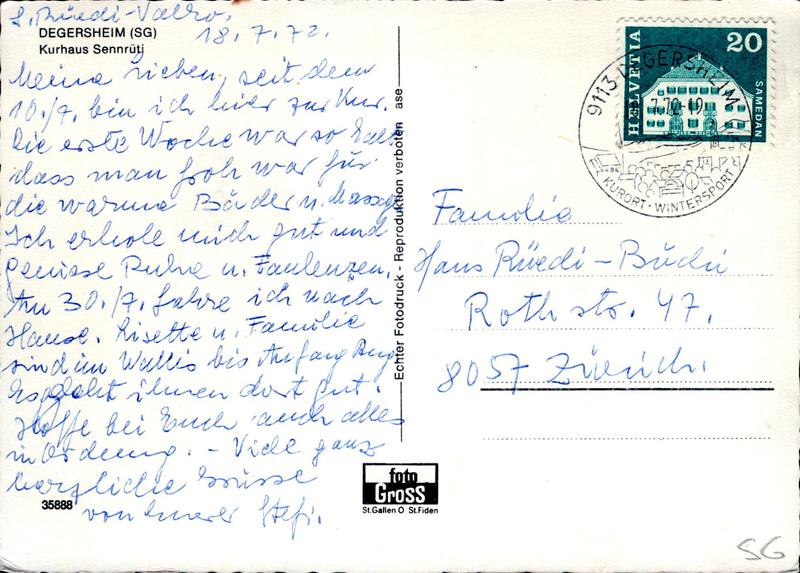 S. Rüedi-Valko.
DEGERSHEIM (SG)
18.7.72.
Kurhaus Sennrüti
Meine Lieben, seit dem
10./7. bin ich hier zur Kur.
Die erste Woche war so kalt
dass man froh war für
die warme Bäder u. Massage
Ich erhole mich gut und
geniesse Ruhe u. Faulenzen.
Am 30./7. fahre ich nach
Hause. Lisette u. Familie
sind im Wallis bis Anfang Aug.
Es geht ihnen dort gut.
Hoffe bei Euch auch alles
in Ordnung. - Viele ganz
herzliche Grüsse
von Eurer Stefi.
35888
Echter Fotodruck - Reproduktion verboten ase
foto
GROSS
St.Gallen O St.Fiden
HELVETIA
20
SAMEDAN
9113 DEGERSHEIM
7.72-19
KURORT · WINTERSPORT
Familie
Hans Rüedi-Büchi
Rothstr. 47.
8057 Zürich.
SG